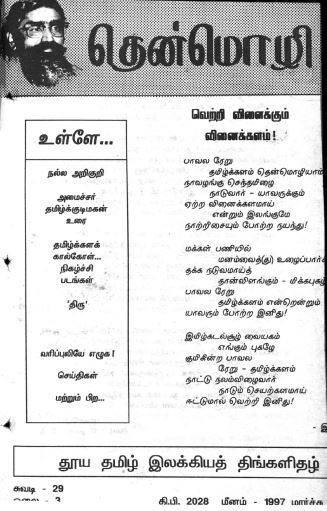 தென்மொழி
உள்ளே...
நல்ல அறிகுறி
அமைச்சர்
தமிழ்க்குடிமகன்
உரை
தமிழ்க்களக்
கால்கோள்...
நிகழ்ச்சி
படங்கள்
'திரு'
வரிப்புலியே எழுக!
செய்திகள்
மற்றும் பிற...
வெற்றி விளைக்கும்
வினைக்களம்!
பாவல ரேறு
தமிழ்க்களம் தென்மொழியாம்
நாவழங்கு செந்தமிழை
நாடுவார் - யாவருக்கும்
ஏற்ற வினைக்களமாய்
என்றும் இலங்குமே
நாற்றிசையும் போற்ற நயந்து!
மக்கள் பணியில்
மனம்வைத்(து) உழைப்பார்க்
தக்க நடுவமாய்த்
தான்விளங்கும் - மிக்கபுகழ்
பாவல ரேறு
தமிழ்க்களம் என்றென்றும்
யாவரும் போற்ற இனிது!
இமிழ்கடல்சூழ் வையகம்
எங்கும் புகழே
குமிகின்ற பாவல
ரேறு - தமிழ்க்களம்
நாட்டு நலம்விழைவார்
நாடும் செயற்களமாய்
ஈட்டுமால் வெற்றி இனிது!
தூய தமிழ் இலக்கியத் திங்களிதழ்
சுவடி - 29
ஓலை - 3
கி.பி. 2028 மீனம் - 1997 மார்ச்சு